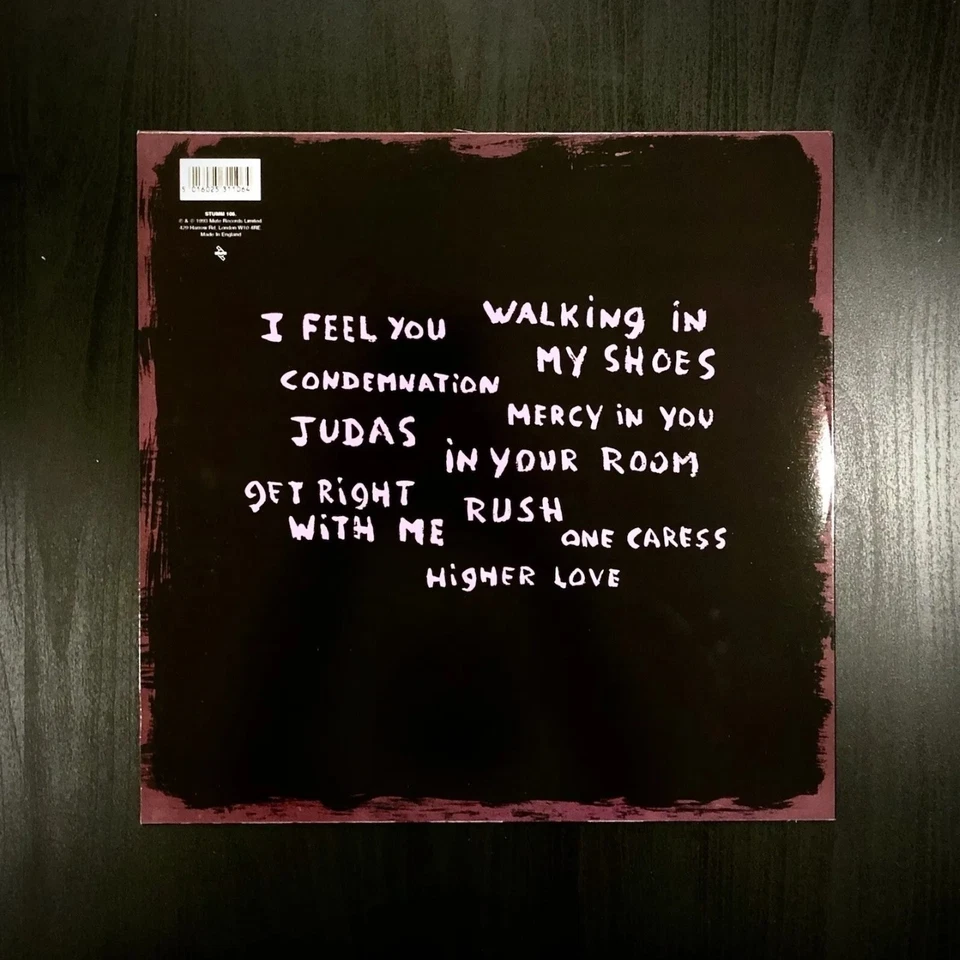 5 016025 311064
STUMM 106.
℗ & © 1993 Mute Records Limited
429 Harrow Rd. London W10 4RE
Made In England
I FEEL YOU
WALKiNg iN
MY SHOES
CONDEMNATiON
MERCY iN YOU
JUDAS
iN YOUR ROOM
gET RigHT
WiTH ME
RUSH
ONE CARESS
HigHER LOVE